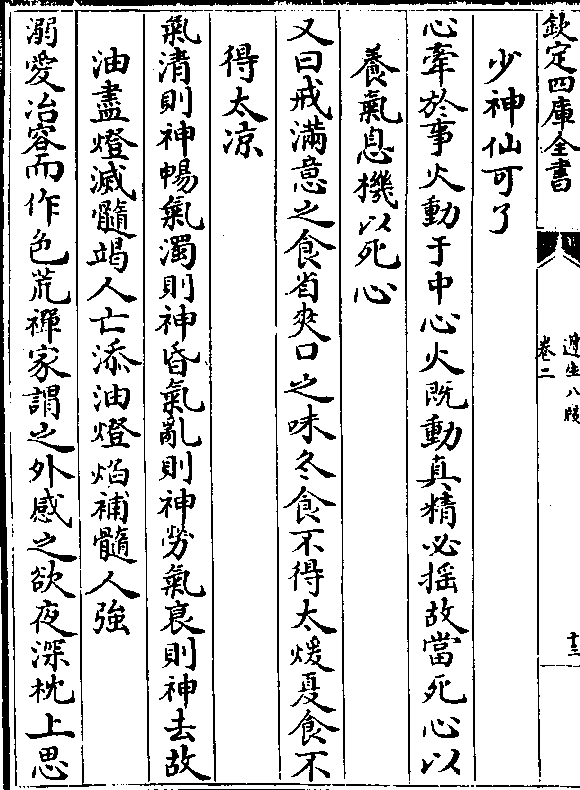 欽定四庫全書
遵生八牋
卷二
十三
少神仙可了
心牽於事火動于中心火既動真精必揺故當死心以
養氣息機以死心
又曰戒滿意之食省爽口之味冬食不得太煖夏食不
得太凉
氣清則神暢氣濁則神昏氣亂則神勞氣衰則神去故
油盡燈滅髓竭人亡添油燈焰補髓人強
溺愛冶容而作色荒禪家謂之外感之欲夜深枕上思